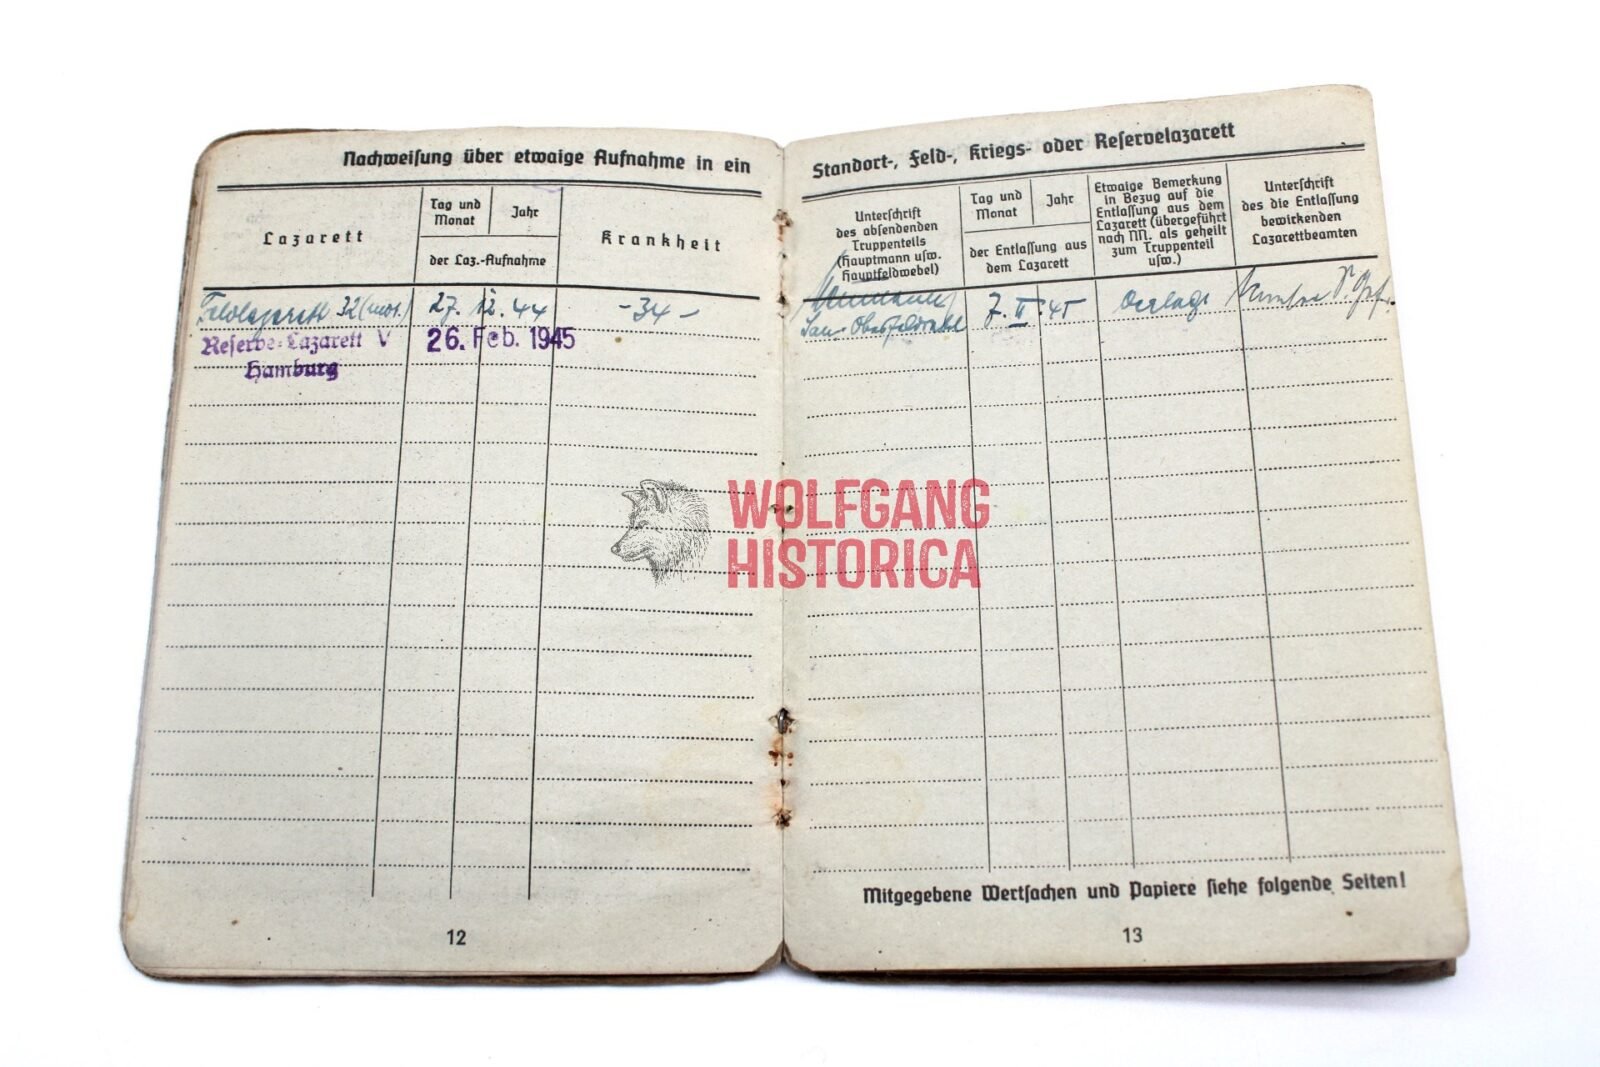 Nachweisung über etwaige Aufnahme in ein
Lazarett
Tag und
Monat
Jahr
der Laz.-Aufnahme
Krankheit
Feldlazarett 32 (mot.) 27. 12. 44 -34-
Reserve-Lazarett V 26. Feb. 1945
Hamburg
12
Standort-, Feld-, Kriegs- oder Reservelazarett
Unterschrift
des absendenden
Truppenteils
(Hauptmann usw.
Hauptfeldwebel)
Tag und
Monat
Jahr
der Entlassung aus
dem Lazarett
Etwaige Bemerkung
in Bezug auf die
Entlassung aus dem
Lazarett (übergeführt
nach NN. als geheilt
zum Truppenteil
usw.)
Unterschrift
des die Entlassung
bewirkenden
Lazarettbeamten
San. Oberfeldwebel 7. II. 45
Mitgegebene Wertsachen und Papiere siehe folgende Seiten!
13
WOLFGANG
HISTORICA